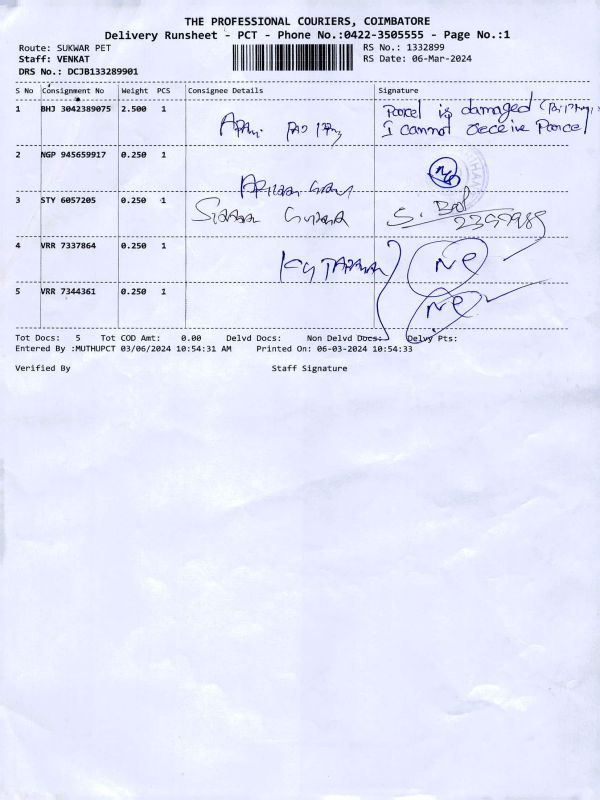 THE PROFESSIONAL COURIERS, COIMBATORE
Delivery Runsheet - PCT - Phone No.:0422-3505555 - Page No.:1
Route: SUKWAR PET
RS No.: 1332899
Staff: VENKAT
RS Date: 06-Mar-2024
DRS No.: DCJB133289901
S No Consignment No Weight PCS Consignee Details Signature
1 BHJ 3042389075 2.500 1
Parcel is damaged
I cannot receive Parcel
2 NGP 945659917 0.250 1
3 STY 6057205 0.250 1
4 VRR 7337864 0.250 1
5 VRR 7344361 0.250 1
Tot Docs: 5 Tot COD Amt: 0.00 Delvd Docs: Non Delvd Docs: Delvy Pts:
Entered By :MUTHUPCT 03/06/2024 10:54:31 AM Printed On: 06-03-2024 10:54:33
Verified By Staff Signature